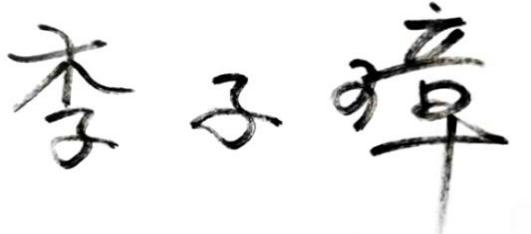 李子璋